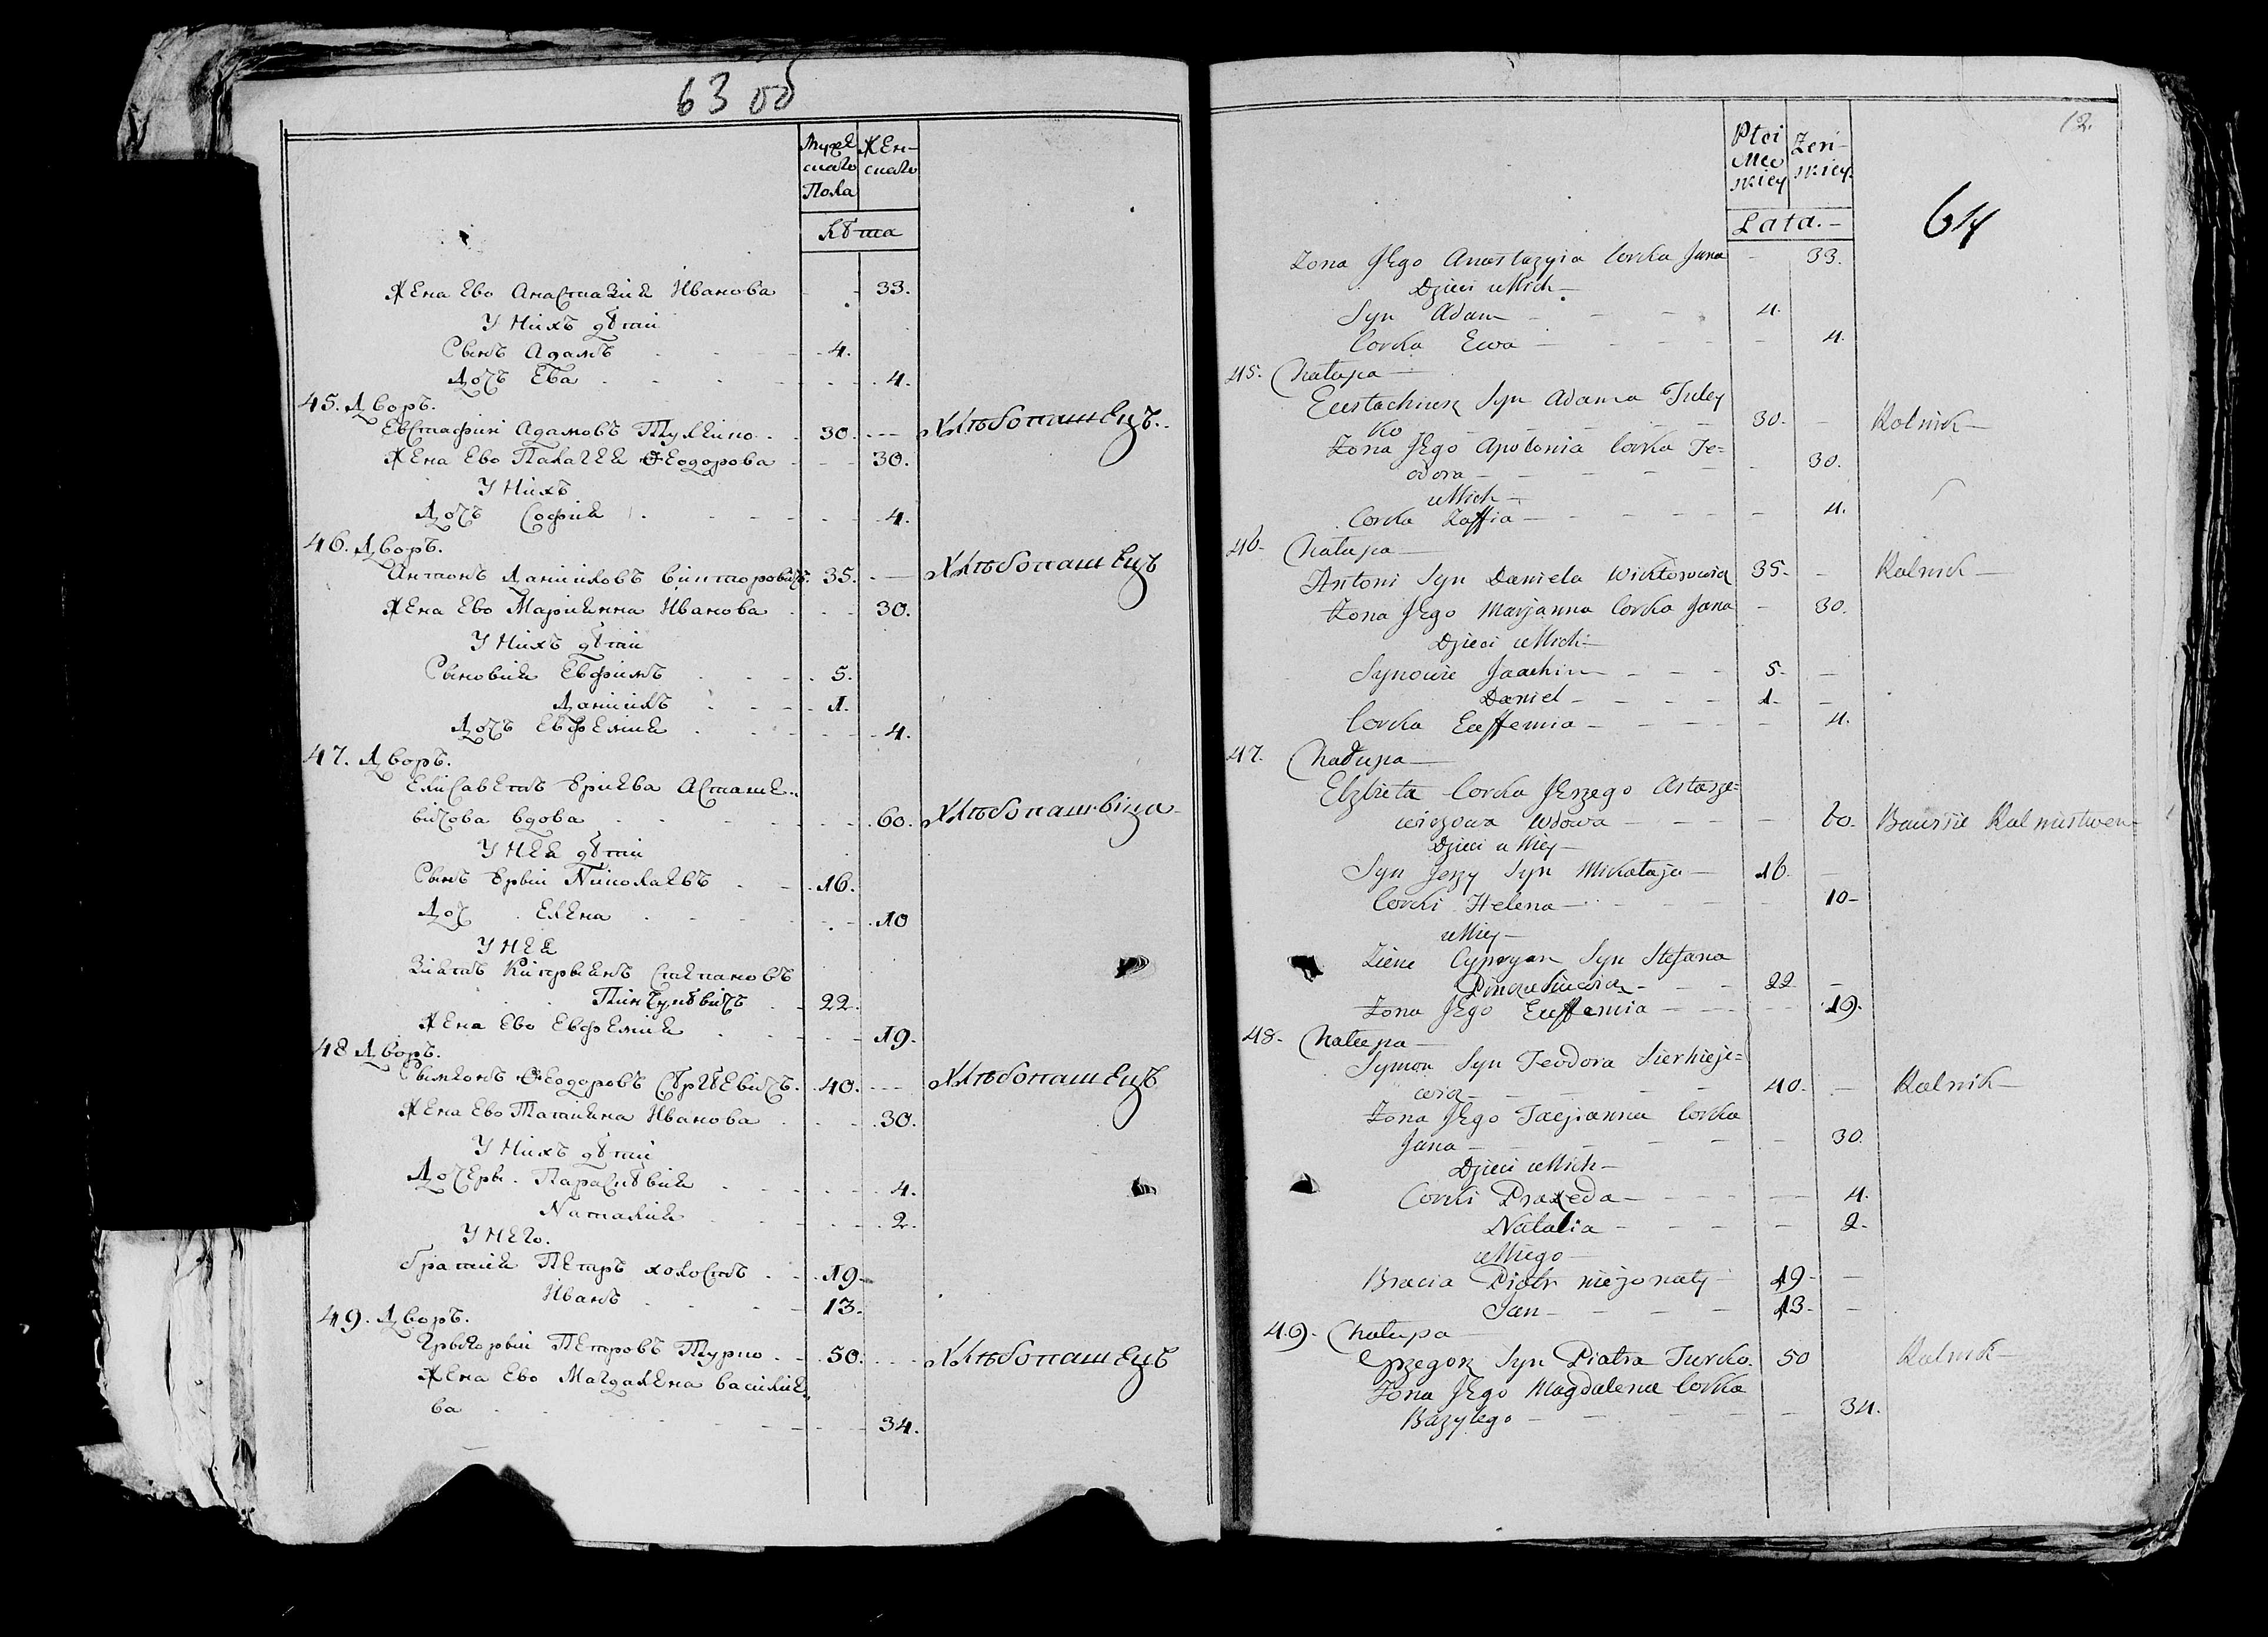 63 об
Мужеска̀го Пола Женскаго
Лѣта
Жена Ево Анастазия Иванова - - 33.
У Нихъ дѣти
Сынъ Адамъ - - 4.
Дочь Ева - - 4.
45. Дворъ.
Евстафий Адамовъ Тулейко - 30. - - Хлѣбопашецъ.
Жена Ево Палагея Ѳеодорова - - 30.
У Нихъ
Дочь София - - 4.
46. Дворъ.
Антонъ Даниловъ Викторовичъ. 35. - - Хлѣбопашецъ
Жена Ево Марианна Иванова - - 30.
У Нихъ дѣти
Сыновия Евфимъ - - 5.
Данилъ - - 1.
Дочь Евфемия - - 4.
47. Дворъ.
Елисаветъ Ериева Асташе-
вичова вдова - - 60. Хлѣбопашвица
У Нея дѣти
Сынъ Ерьи Николаевъ - - 16.
Доч Елена - - 10
У Нея
Зиать Киприянъ Степановъ
Пинчуквичъ - 22.
Жена Ево Евфемия - - 19.
48 Дворъ.
Сымеонъ Ѳеодоровъ Сѣргѣевичъ. 40. - - Хлѣбопашецъ
Жена Ево Татияна Иванова - - 30.
У Нихъ дѣти
Дочерьи. Параскѣвия - - 4.
Наталия - - 2.
У Него.
братия Петръ холостъ - - 19.
Иванъ - - 13.
49. Дворъ.
Грыгорьий Петровъ Турко - - 50. - - Хлѣбопашецъ
Жена Ево Магдалена Василие-
ва - - 34.
12.
64
Płci Męskiey Żeńskiey
Lata. -
Zona Jego Anastazyia Corka Jana - 33.
Dzieci u Nich -
Syn Adam - - - 4.
Corka Ewa - - - 4.
45. Chałupa -
Eustachiusz Syn Adama Tuley
ko - - - 30. - Rolnik -
Zona Jego Apolonia Corka Te=
odora - - - 30.
u Nich -
Corka Zoffia - - - 4.
46. Chałupa -
Antoni Syn Daniela Wicktorowicz 35. - Rolnik -
Zona Jego Marjanna Corka Jana - 30.
Dzieci u Nich -
Synowie Joachim - - - 5. -
Daniel - - - 1. -
Corka Eufemia - - - 4.
47. Chałupa -
Elzbieta Corka Jerzego Astasze=
wiczowa Wdowa - - - 60. Bawisie Rolnistwem
Dzieci u Niey -
Syn Jerzy Syn Mikołaja - 16. -
Corki Helena - - - 10 -
u Niey -
Zienc Cypryan Syn Stefana
Pinczukiewicz - - - 22 -
Zona Jego Euffemia - - - 19.
48. Chałupa -
Symon Syn Teodora Sierhieje=
wicz - - - 40. - Rolnik -
Zona Jego Tacjanna Corka
Jana - - - 30.
Dzieci u Nich -
Corki Praxeda - - - 4.
Natalia - - - 2.
u Niego -
Bracia Piotr niezonaty - 19 - -
Jan - - - 13 - -
49. Chałupa -
Grzegorz Syn Piotra Turko. 50 Rolnik -
Zona Jego Magdalena Corka
Bazylego - - - 34.